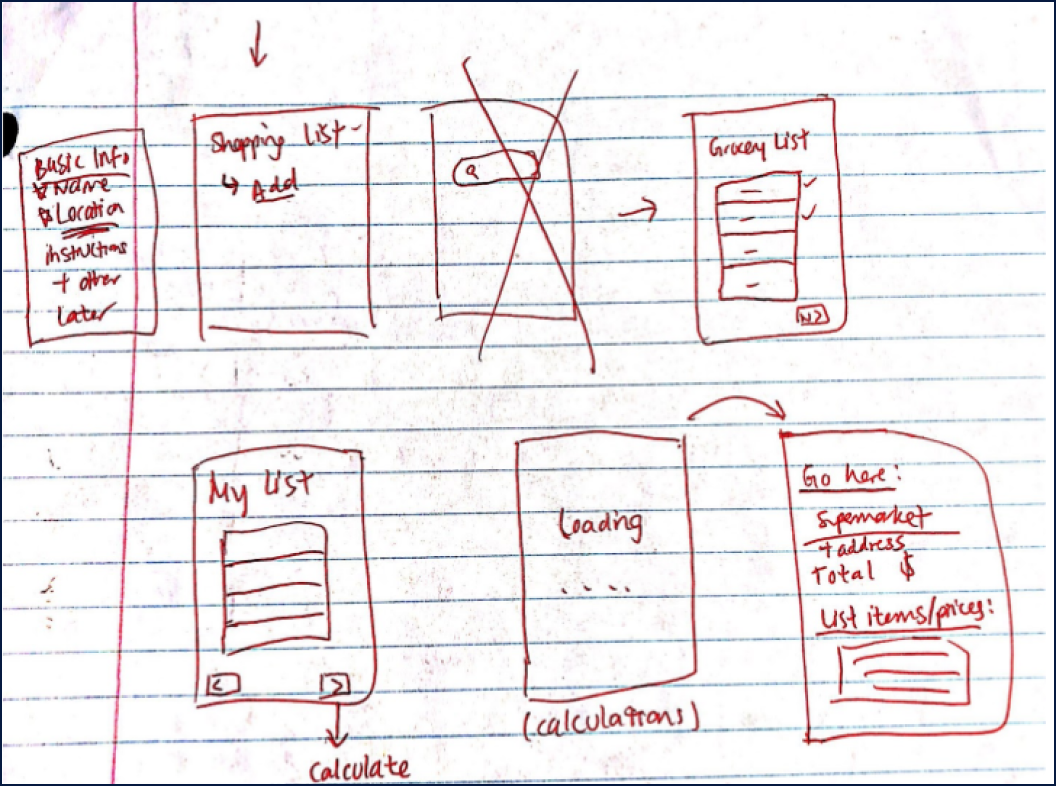 Basic Info
* Name
* Location
instructions
+ other
later
Shopping List
↳ Add
Grocery List
N>
My List
<
>
calculate
Loading
....
(calculations)
Go here:
Supermarket
+ address
Total $
List items/prices: